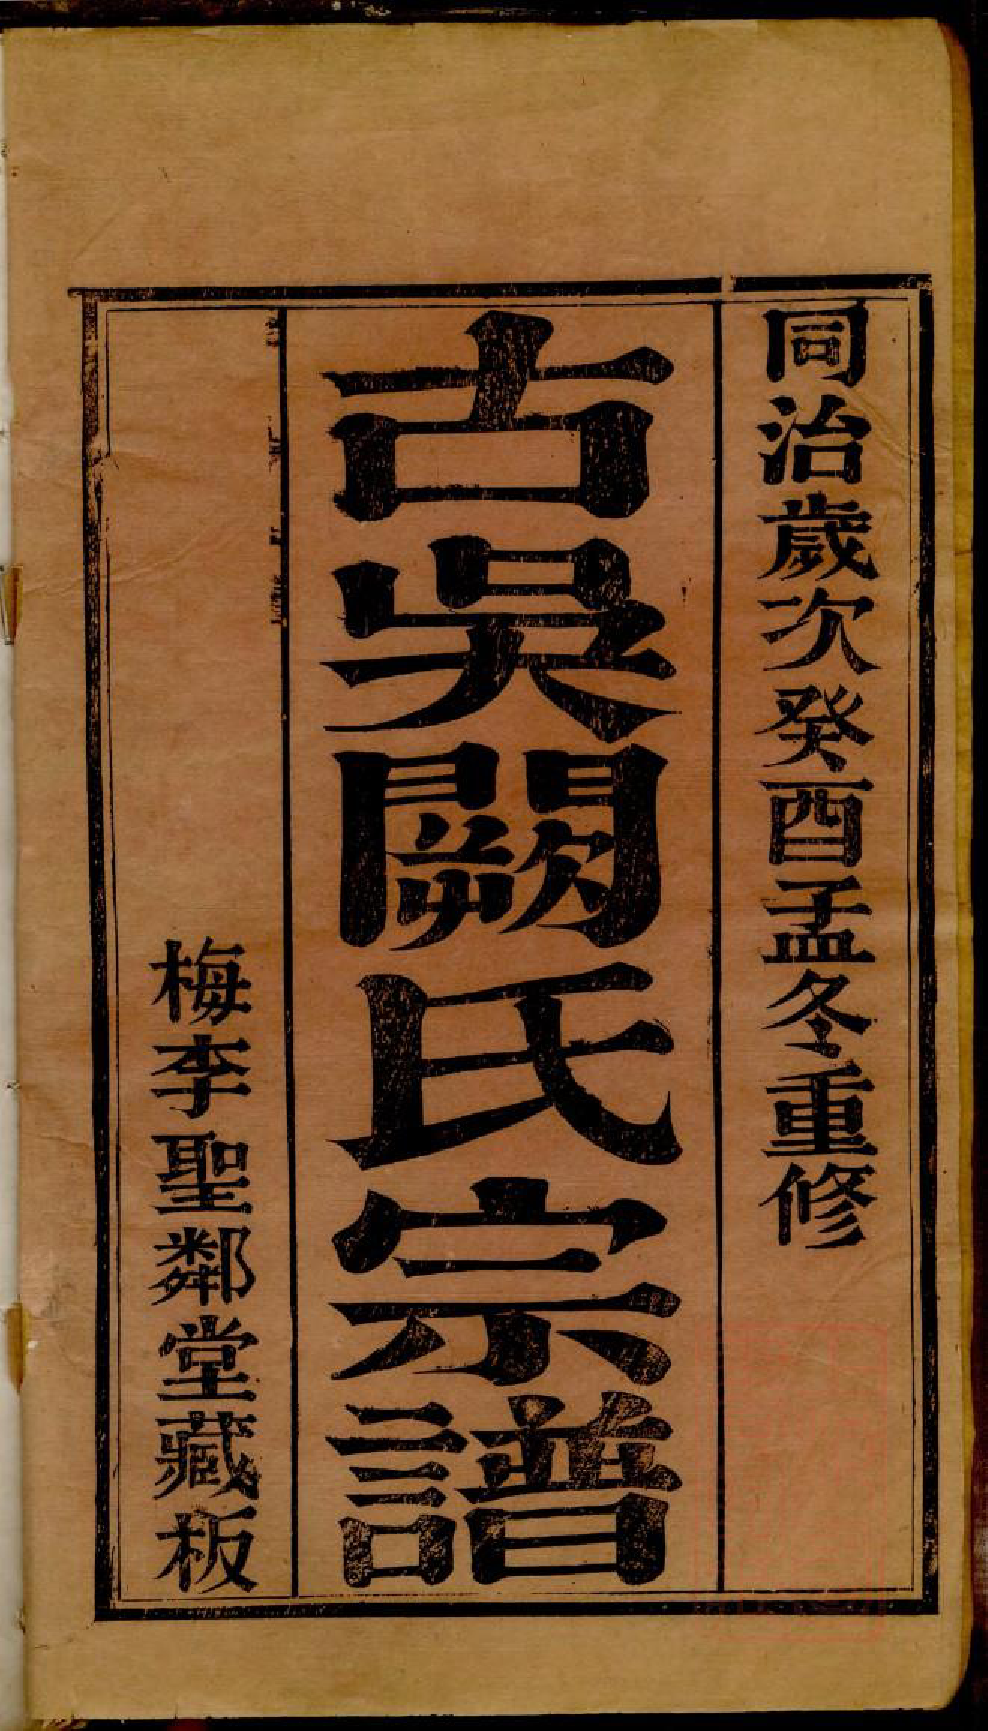 同治歲次癸酉孟冬重修
古吳闕氏宗譜
梅李聖鄰堂藏板